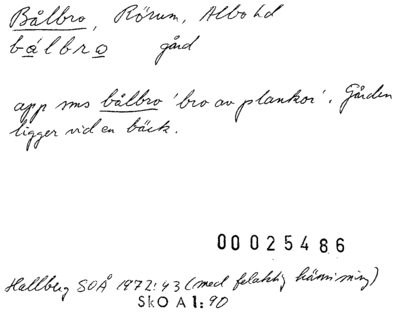 Bålbro, Rörum, Albo hd
bålbro gård
app sms bålbro 'bro av plankor'. Gården
ligger vid en bäck.
00025486
Hallberg SOÅ 1972:43 (med felaktig hänvisning)
SkO A1:90